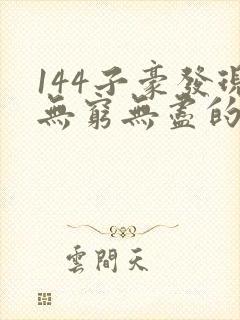 144子豪發現
無窮無盡的
雲間天